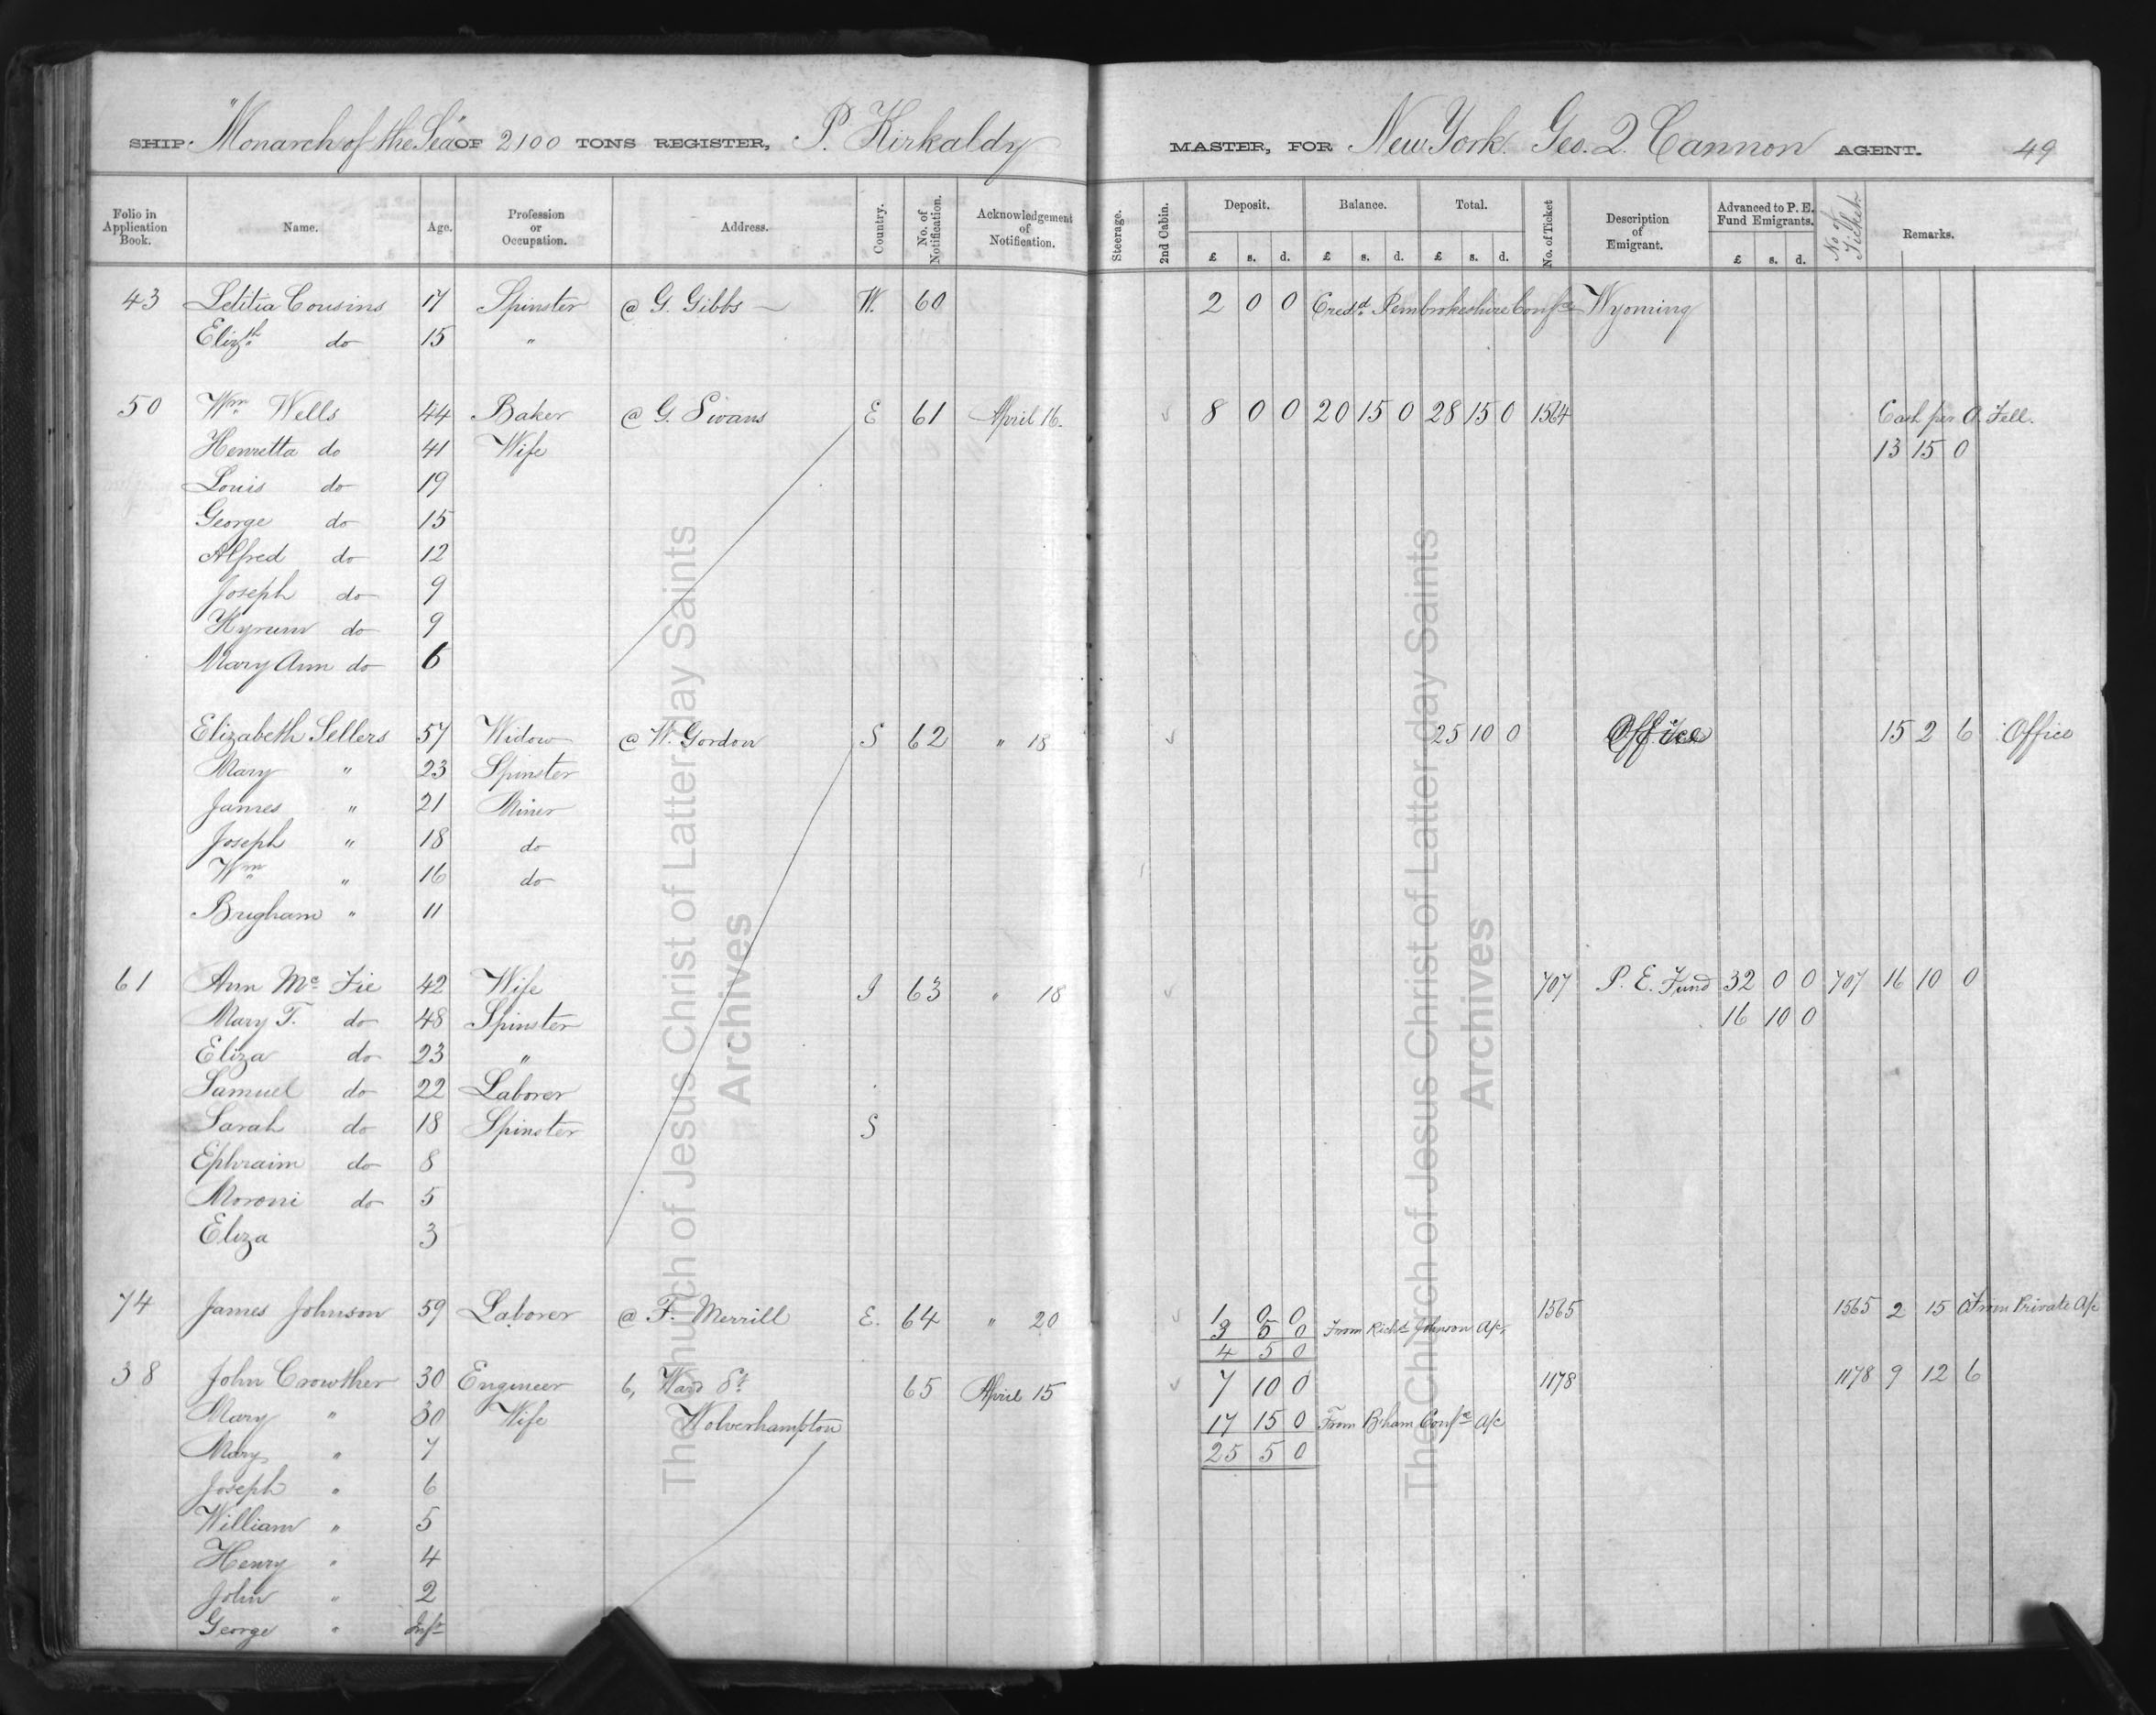 SHIP. "Monarch of the Sea" OF 2100 TONS REGISTER, P. Kirkaldy MASTER, FOR New York. Geo. Q. Cannon AGENT. 49
Folio in Application Book. Name. Age. Profession or Occupation. Address. Country. No. of Notification. Acknowledgement of Notification. Steerage. 2nd Cabin. Deposit. Balance. Total. No. of Ticket Description of Emigrant. Advanced to P. E. Fund Emigrants. No of Ticket. Remarks.
£ s. d. £ s. d. £ s. d. £ s. d.
43 Letitia Cousins 17 Spinster @ G. Gibbs — W. 60 2 0 0 Credd. Pembrokeshire Confce Wyoming
Elizth. do 15 "
50 Wm Wells 44 Baker @ G. Swans E 61 April 16. 8 0 0 20 15 0 28 15 0 1564 Cash per A. Fell.
Henretta do 41 Wife 13 15 0
Louis do 19
George do 15
Alfred do 12
Joseph do 9
Hyrum do 9
Mary Ann do 6
Elizabeth Sellers 57 Widow @ W. Gordon S 62 " 18 25 10 0 Office 15 2 6 Office
Mary " 23 Spinster
James " 21 Miner
Joseph " 18 do
Wm " 16 do
Brigham " 11
61 Ann Mc Fie 42 Wife I 63 " 18 707 P. E. Fund 32 0 0 707 16 10 0
Mary T. do 48 Spinster 16 10 0
Eliza do 23 "
Samuel do 22 Laborer
Sarah do 18 Spinster S
Ephraim do 8
Moroni do 5
Eliza 3
74 James Johnson 59 Laborer @ F. Merrill E. 64 " 20 1 0 0 1565 1565 2 15 0 From Private A/c
3 5 0 From Richd Johnson A/c
4 5 0
38 John Crowther 30 Engineer 6, Ward St. 65 April 15 7 10 0 1178 1178 9 12 6
Mary " 30 Wife Wolverhampton 17 15 0 From B.ham Confce A/c
Mary " 7 25 5 0
Joseph " 6
William " 5
Henry " 4
John " 2
George " Inft
The Church of Jesus Christ of Latter-day Saints
Archives
The Church of Jesus Christ of Latter-day Saints
Archives